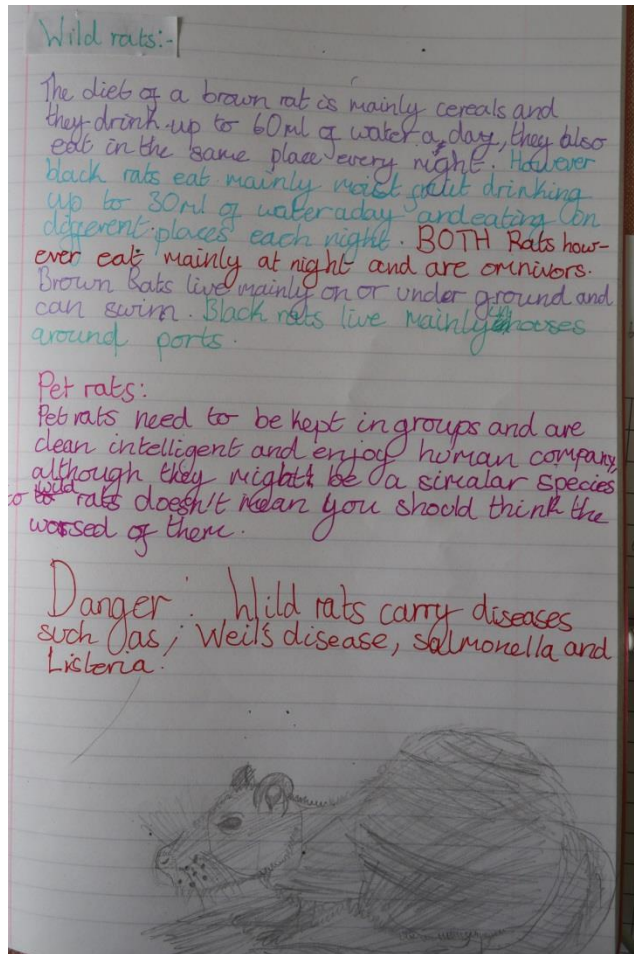 Wild rats:-
The diet of a brown rat is mainly cereals and
they drink up to 60ml of water a day, they also
eat in the same place every night. However
black rats eat mainly moist fruit drinking
up to 30ml of water a day and eating on
different places each night. BOTH Rats how-
ever eat mainly at night and are omnivors.
Brown Rats live mainly on or under ground and
can swim. Black rats live mainly houses
around ports.
Pet rats:
Pet rats need to be kept in groups and are
clean intelligent and enjoy human company,
although they might be a simalar species
to wild rats doesn't mean you should think the
worsed of them.
Danger: Wild rats carry diseases
such as; Weil's disease, Salmonella and
Listeria.